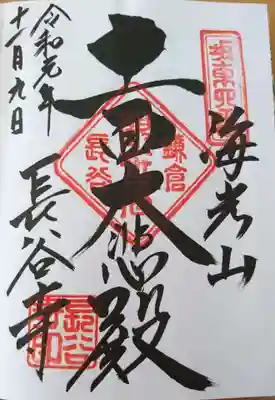 海光山
十一面大悲殿
令和元年
十一月九日
長谷寺
鎌倉
長谷